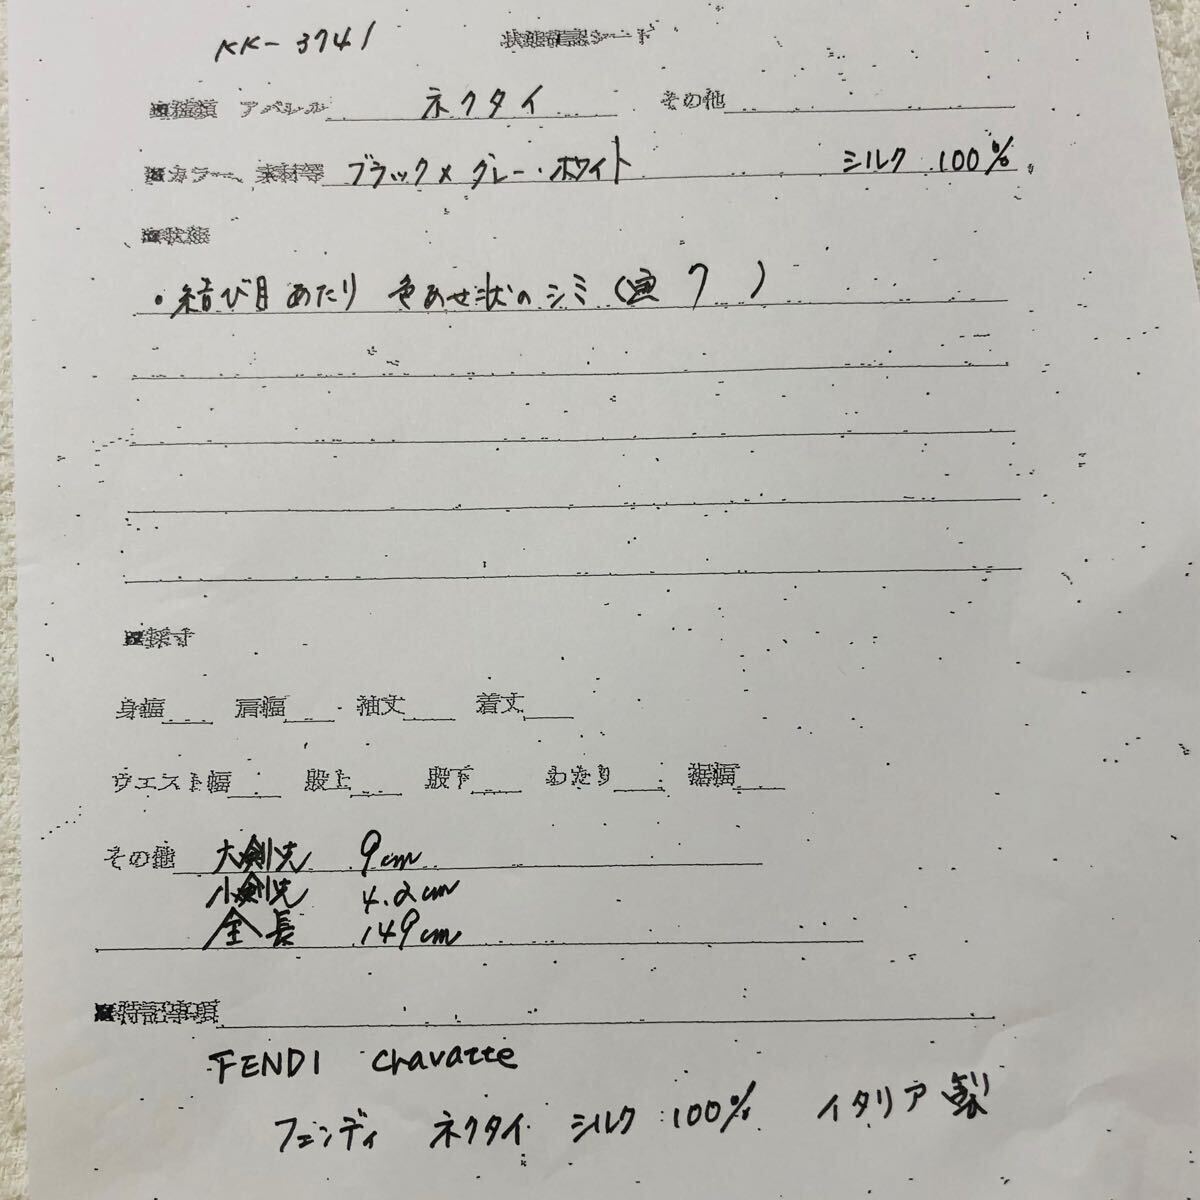 KK-3741 状態確認シート
■種類 アパレル ネクタイ その他
■カラー、素材等 ブラック×グレー・ホワイト シルク 100%
■状態
・結び目あたり 色あせ状のシミ(画 7 )
■採寸
身幅 肩幅 袖丈 着丈
ウエスト幅 股上 股下 わたり 裾幅
その他 大剣先 9cm
小剣先 4.2cm
全長 149cm
■特記事項
FENDI Cravatte
フェンディ ネクタイ シルク 100% イタリア製